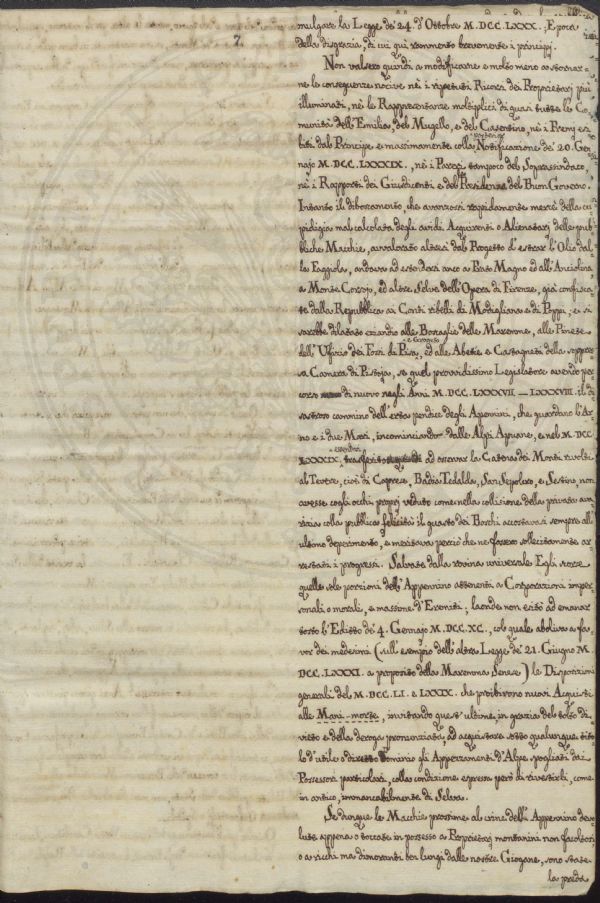 7.
mulgare la Legge de' 24. d'Ottobre M. DCC. LXXX., Epoca
della disgrazia, di cui qui rammento brevemente i principj.
Non valsero quindi a modificarne e molto meno a stornar-
ne le conseguenze nocive nè i ripetuti Ricorsi dei Proprietarj più
illuminati, nè le Rappresentanze moltiplici di quasi tutte le Co-
munità dell'Emilia, del Mugello, e del Casentino, nè i Premj esi-
biti dal Principe e massimamente colla Notificazione de' 20. Gen-
najo M. DCC. LXXXIX., nè i Pareri tampoco del Soprassindaco,
nè i Rapporti dei Giusdicenti e del Presidente del Buon Governo.
Intanto il diboscamento, che avanzossi rapidamente mercè della cu-
pidigia mal calcolata degli avidi Acquirenti o Alienatarj delle pub-
bliche Macchie, avvalorato altresì dal Progetto d'estrar l'Olio dal-
la Faggiola, andava ad estendersi anco a Prato Magno ed all'Anciolina,
a Monte Corsojo, ed altre Selve dell'Opera di Firenze, già confisca-
te dalla Repubblica ai Conti ribelli di Modigliana e di Poppi; e si
sarebbe dilatato eziandio alle Boscaglie delle Maremme, alle Pinete
dell'Ufizio dei Fossi di Pisa, ed alle Abetie e Castagneti della soppres-
sa Camera di Pistoja, se quel provvidissimo Legislatore avendo per-
corso di nuovo negli Anni M. DCC. LXXXVII — LXXXVIII. il di-
sastroso cammino dell'erta pendice degli Apennini, che guardano l'Ar-
no e i due Mari, incominciando dalle Alpi Apuane, e nel M. DCC.
LXXXIX. trasferito ad osservar la Catena dei Monti rivolti
al Tevere, cioè di Caprese, Badia Tedalda, San Sepolcro, e Sestino, non
avesse cogli occhj proprj veduto come nella collisione della privata ava-
rizia colla pubblica felicità il guasto dei Boschi accostavasi sempre all'
ultimo deperimento, e meritava perciò che ne fossero sollecitamente ar-
restati i progressi. Salvate dalla rovina universale Egli scorse
quelle sole porzioni dell'Appennino attenenti a Corporazioni imper-
sonali o morali, e massime d'Eremiti; laonde non esitò ad emanar
tosto l'Editto de' 4. Gennajo M. DCC. XC., col quale aboliva a fa-
vor dei medesimi (sull'esempio dell'altra Legge de' 21. Giugno M.
DCC. LXXXI. a proposito della Maremma Senese) le Disposizioni
generali del M. DCC. LI. e LXXIX. che proibirono nuovi Acquisti
alle Mani-morte, invitando quest'ultime, in grazia del tolto di-
vieto e della deroga pronunziata, ad acquistare sotto qualunque tito-
lo d'utile o diretto Dominio gli Appezzamenti d'Alpe spogliati dai
Possessori particolari, colla condizione espressa però di rivestirli, come
in antico, immancabilmente di Selva.
Se dunque le Macchie prossime al crine dell'Appennino devo-
lute appena o toccate in possesso a Proprietarj montanini non facoltosi
o a ricchi ma dimoranti ben lungi dalle nostre Giogane, sono state
la preda